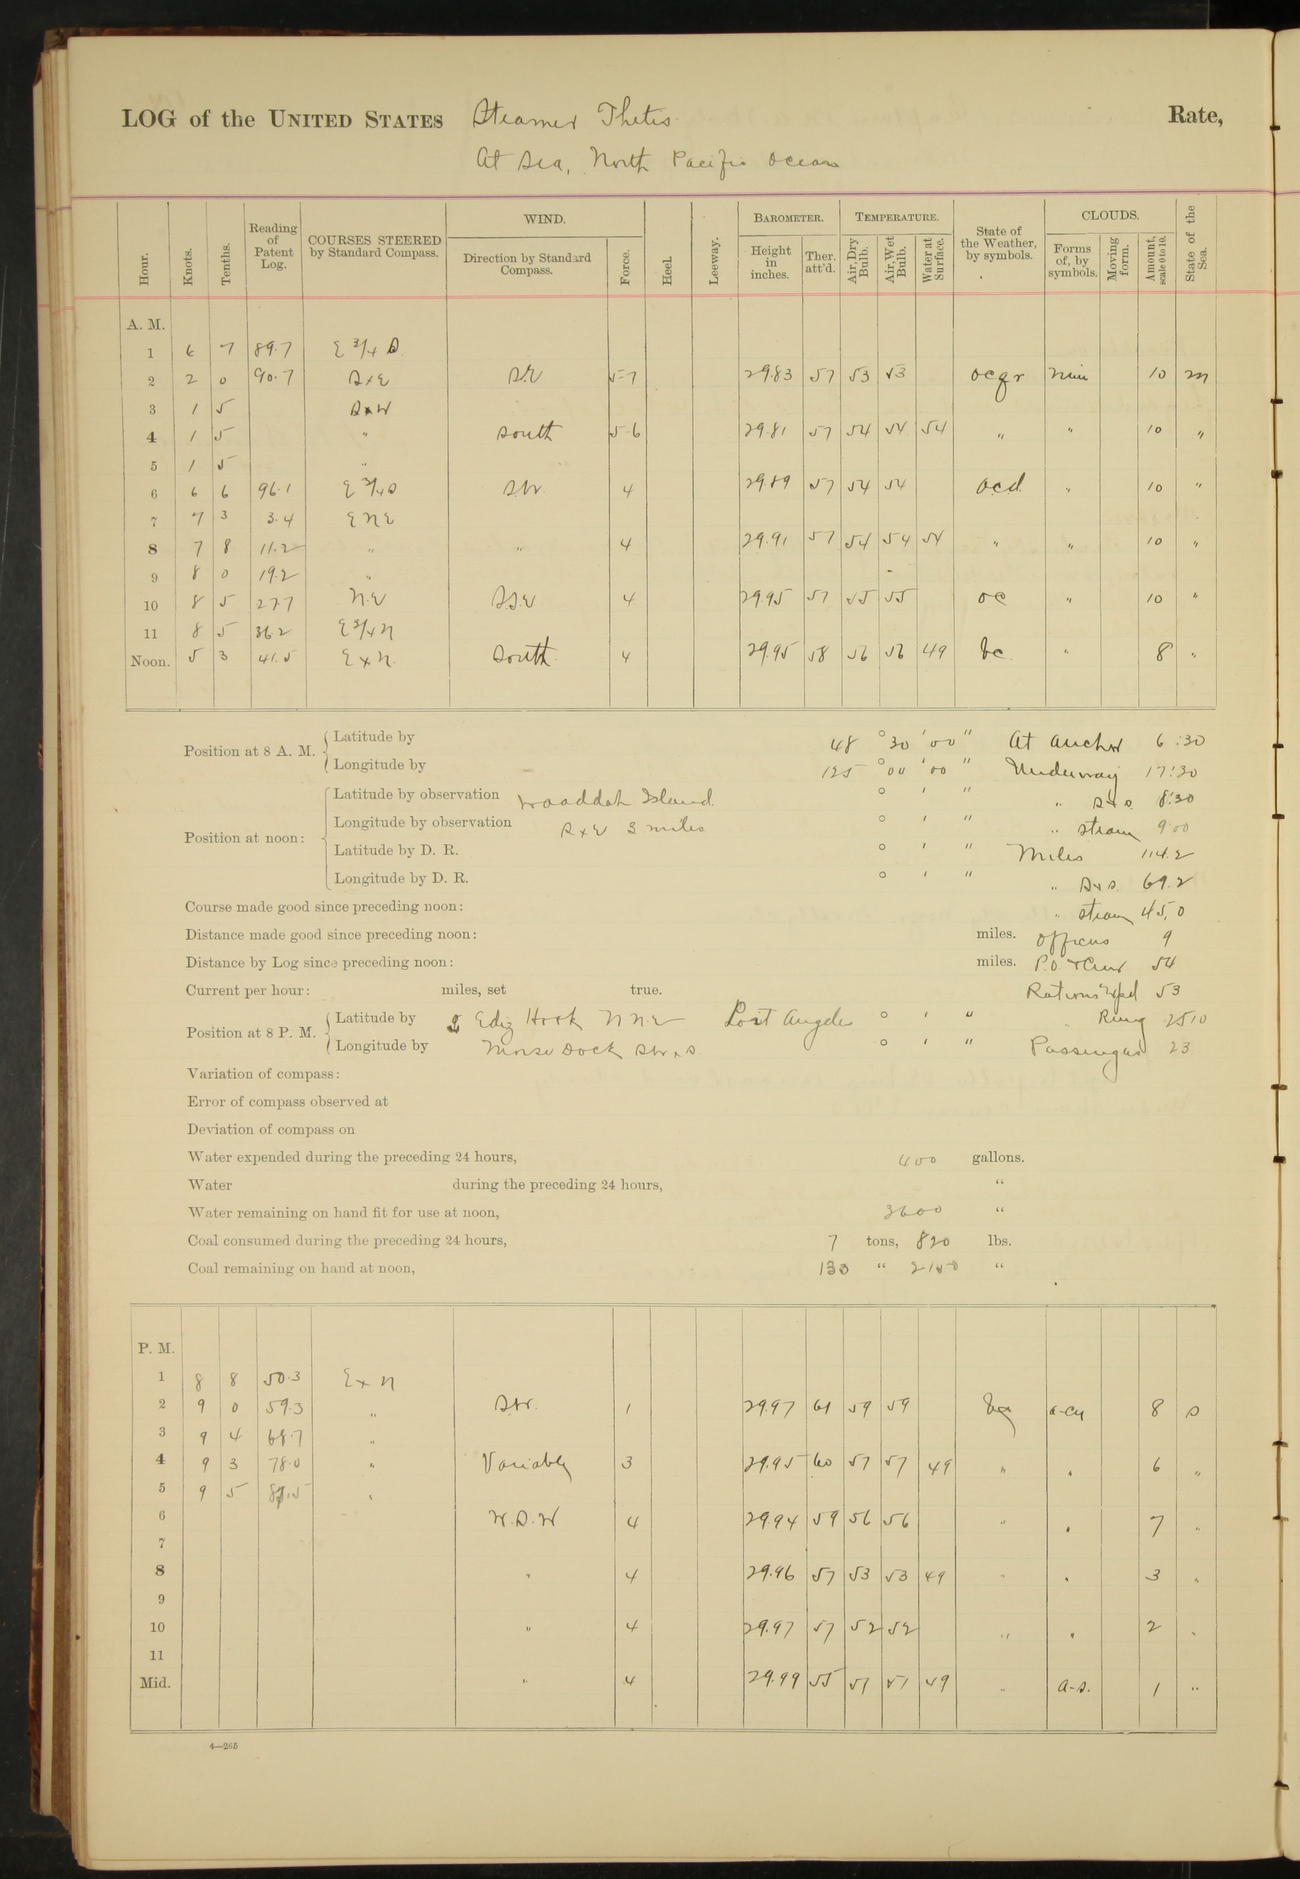 LOG of the UNITED STATES Steamer Thetis Rate,
At Sea, North Pacific Ocean
Hour. Knots. Tenths. Reading of Patent Log. COURSES STEERED by Standard Compass. WIND. Direction by Standard Compass. Force. Heel. Leeway. BAROMETER. Height in inches. Ther. att'd. TEMPERATURE. Air, Dry Bulb. Air, Wet Bulb. Water at Surface. State of the Weather, by symbols. CLOUDS. Forms of, by symbols. Moving form. Amount, scale 0 to 10. State of the Sea.
A. M.
1 6 7 89.7 E 3/4 S
2 2 0 90.7 SxE SE 5-7 29.83 57 53 53 ocqr nim 10 m
3 1 5 SxW
4 1 5 " South 5-6 29.81 57 54 54 54 " " 10 "
5 1 5 "
6 6 6 96.1 E 3/4 S SW 4 29.89 57 54 54 ocd " 10 "
7 7 3 3.4 ENE
8 7 8 11.2 " " 4 29.91 57 54 54 54 " " 10 "
9 8 0 19.2 "
10 8 5 27.7 NE SSE 4 29.95 57 55 55 oc " 10 "
11 8 5 36.2 E 3/4 N
Noon. 5 3 41.5 ExN. South 4 29.95 58 56 56 49 bc. " 8 "
Position at 8 A. M. Latitude by 48 ° 30 ' 00 " At anchor 6:30
Longitude by 125 ° 00 ' 00 " Underway 17:30
Position at noon: Latitude by observation Waaddah Island ° ' " " S&S. 8:30
Longitude by observation SxE 3 miles ° ' " " steam 9:00
Latitude by D. R. ° ' " Miles 114.2
Longitude by D. R. ° ' " " S&S. 69.2
Course made good since preceding noon: " steam 45.0
Distance made good since preceding noon: miles. Officers 9
Distance by Log since preceding noon: miles. P.O. & Crew 54
Current per hour: miles, set true. Rations 53
Position at 8 P. M. Latitude by Ediz Hook NNE Port Angeles ° ' " " Rmng 2510
Longitude by Morse Dock SWxS. ° ' " Passengers 23
Variation of compass:
Error of compass observed at
Deviation of compass on
Water expended during the preceding 24 hours, 400 gallons.
Water during the preceding 24 hours, "
Water remaining on hand fit for use at noon, 3600 "
Coal consumed during the preceding 24 hours, 7 tons, 820 lbs.
Coal remaining on hand at noon, 130 "
P. M.
1 8 8 50.3 ExN
2 9 0 59.3 " SW. 1 29.97 61 59 59 a-cu 8 S
3 9 4 68.7 "
4 9 3 78.0 " Variable 3 29.95 60 57 57 49 " " 6 "
5 9 5 87.5 "
6 W.S.W 4 29.94 59 56 56 " " 7 "
7
8 " 4 29.96 57 53 53 49 " " 3 "
9
10 " 4 29.97 57 52 52 " " 2 "
11
Mid. " 4 29.99 55 51 51 49 " a-s. 1 "
4—265